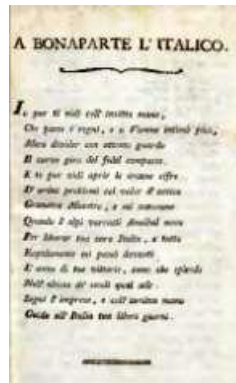 A BONAPARTE L' ITALICO.
Io pur ti vidi coll' invitta mano,
Che parte i regni, e a Vienna intimò pace,
Meco divider con attento guardo
Il curvo giro del fedel compasso.
E te pur vidi aprir le arcane cifre
D' ardui problemi col valor d' antico
Geometra Maestro, e mi sovvenne
Quando l' alpi varcasti Annibal novo
Per liberar tua cara Italia, e tutto
Rapidamente mi passò davanti
L' anno di tue vittorie, anno che splende
Nell' abisso de' secoli qual sole.
Segui l' impresa, e coll' invitta mano
Guida all' Italia tua liberi giorni.